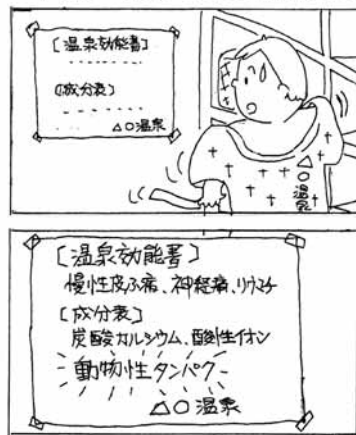 [温泉効能書]
[成分表]
△○温泉
△○温泉
[温泉効能書]
慢性皮ふ病、神経痛、リウマチ
[成分表]
炭酸カルシウム、酸性イオン
動物性タンパク
△○温泉